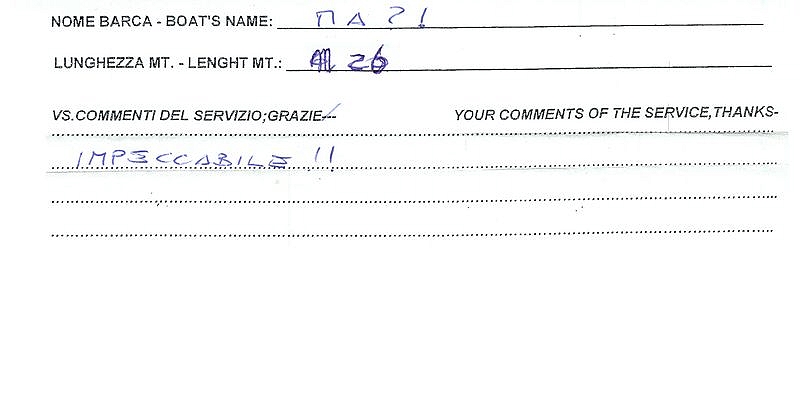 NOME BARCA - BOAT'S NAME: MA?!
LUNGHEZZA MT. - LENGHT MT.: 26
VS.COMMENTI DEL SERVIZIO;GRAZIE--- YOUR COMMENTS OF THE SERVICE,THANKS-
IMPECCABILE !!